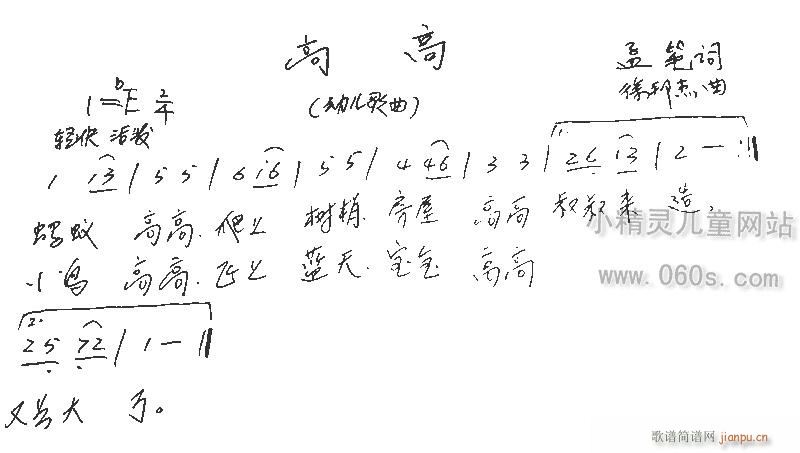 高 高
孟 笔词
1=bE 2/4
(幼儿歌曲)
徐邦杰曲
轻快 活发
1 13 | 5 5 | 6 i6 | 5 5 | 4 46 | 3 3 | 1. 26 13 | 2 — :||
蚂蚁 高高.爬上 树梢.房屋 高高 叔叔来 造,
小鸟 高高.飞上 蓝天.宝宝 高高
小精灵儿童网站
www.060s.com
2. 25 72 | 1 — ||
又长大 了。
歌谱简谱网 jianpu.cn